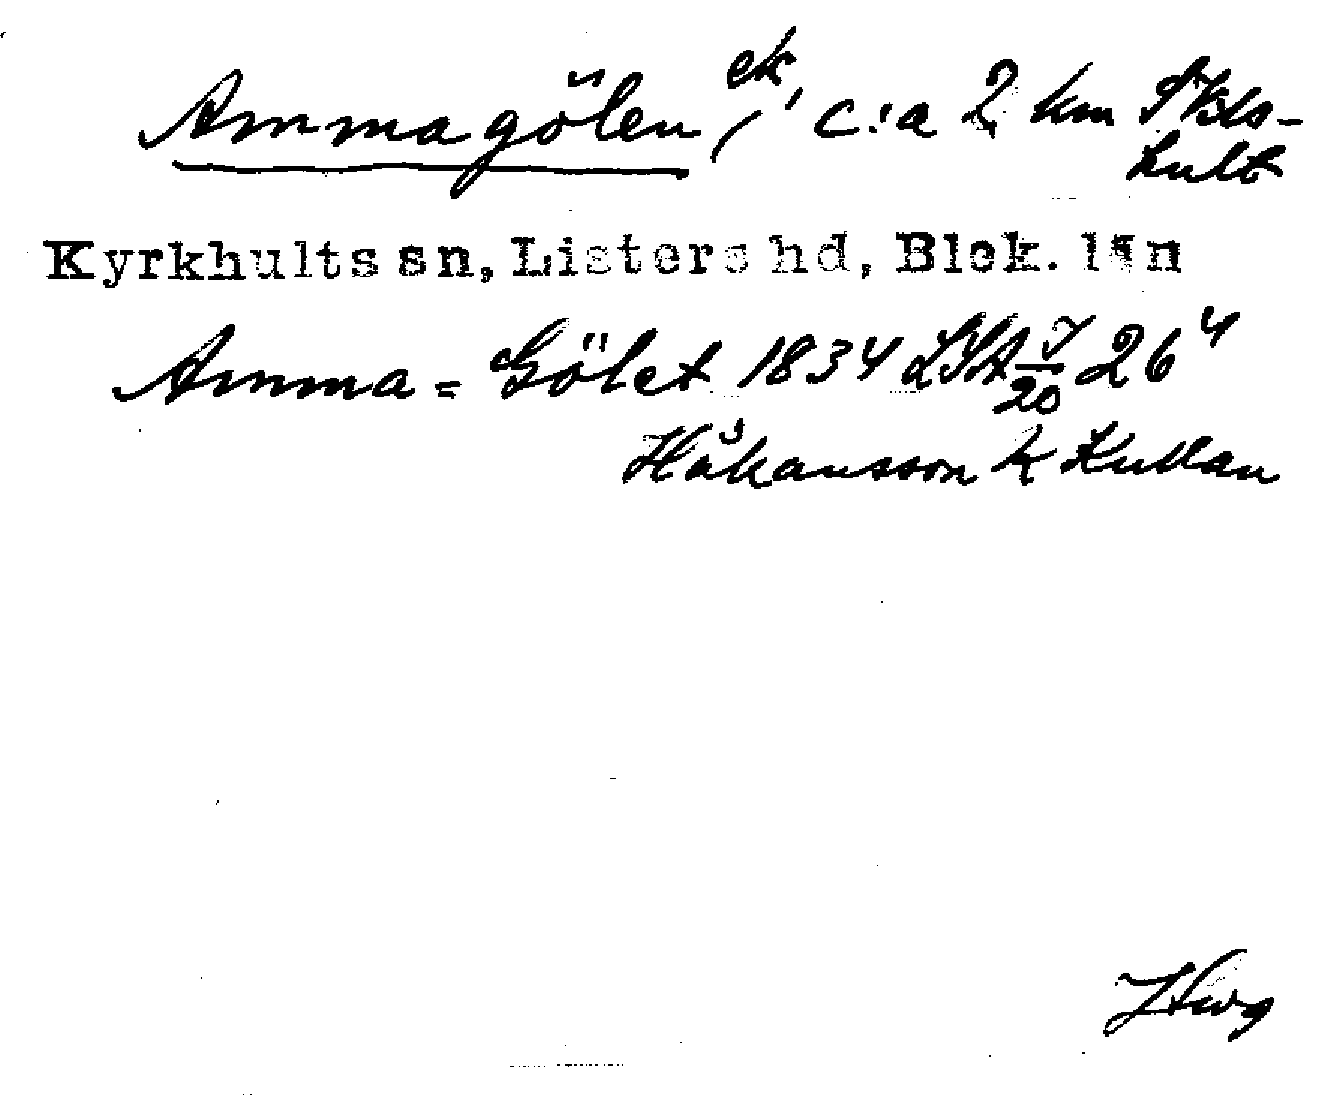 Ammagölen, ek, c:a 2 km
hult
Kyrkhults sn, Listers hd, Blek. län
Amma = Gölet 1834 LSA 20 26⁴
Håkansson k Kullan